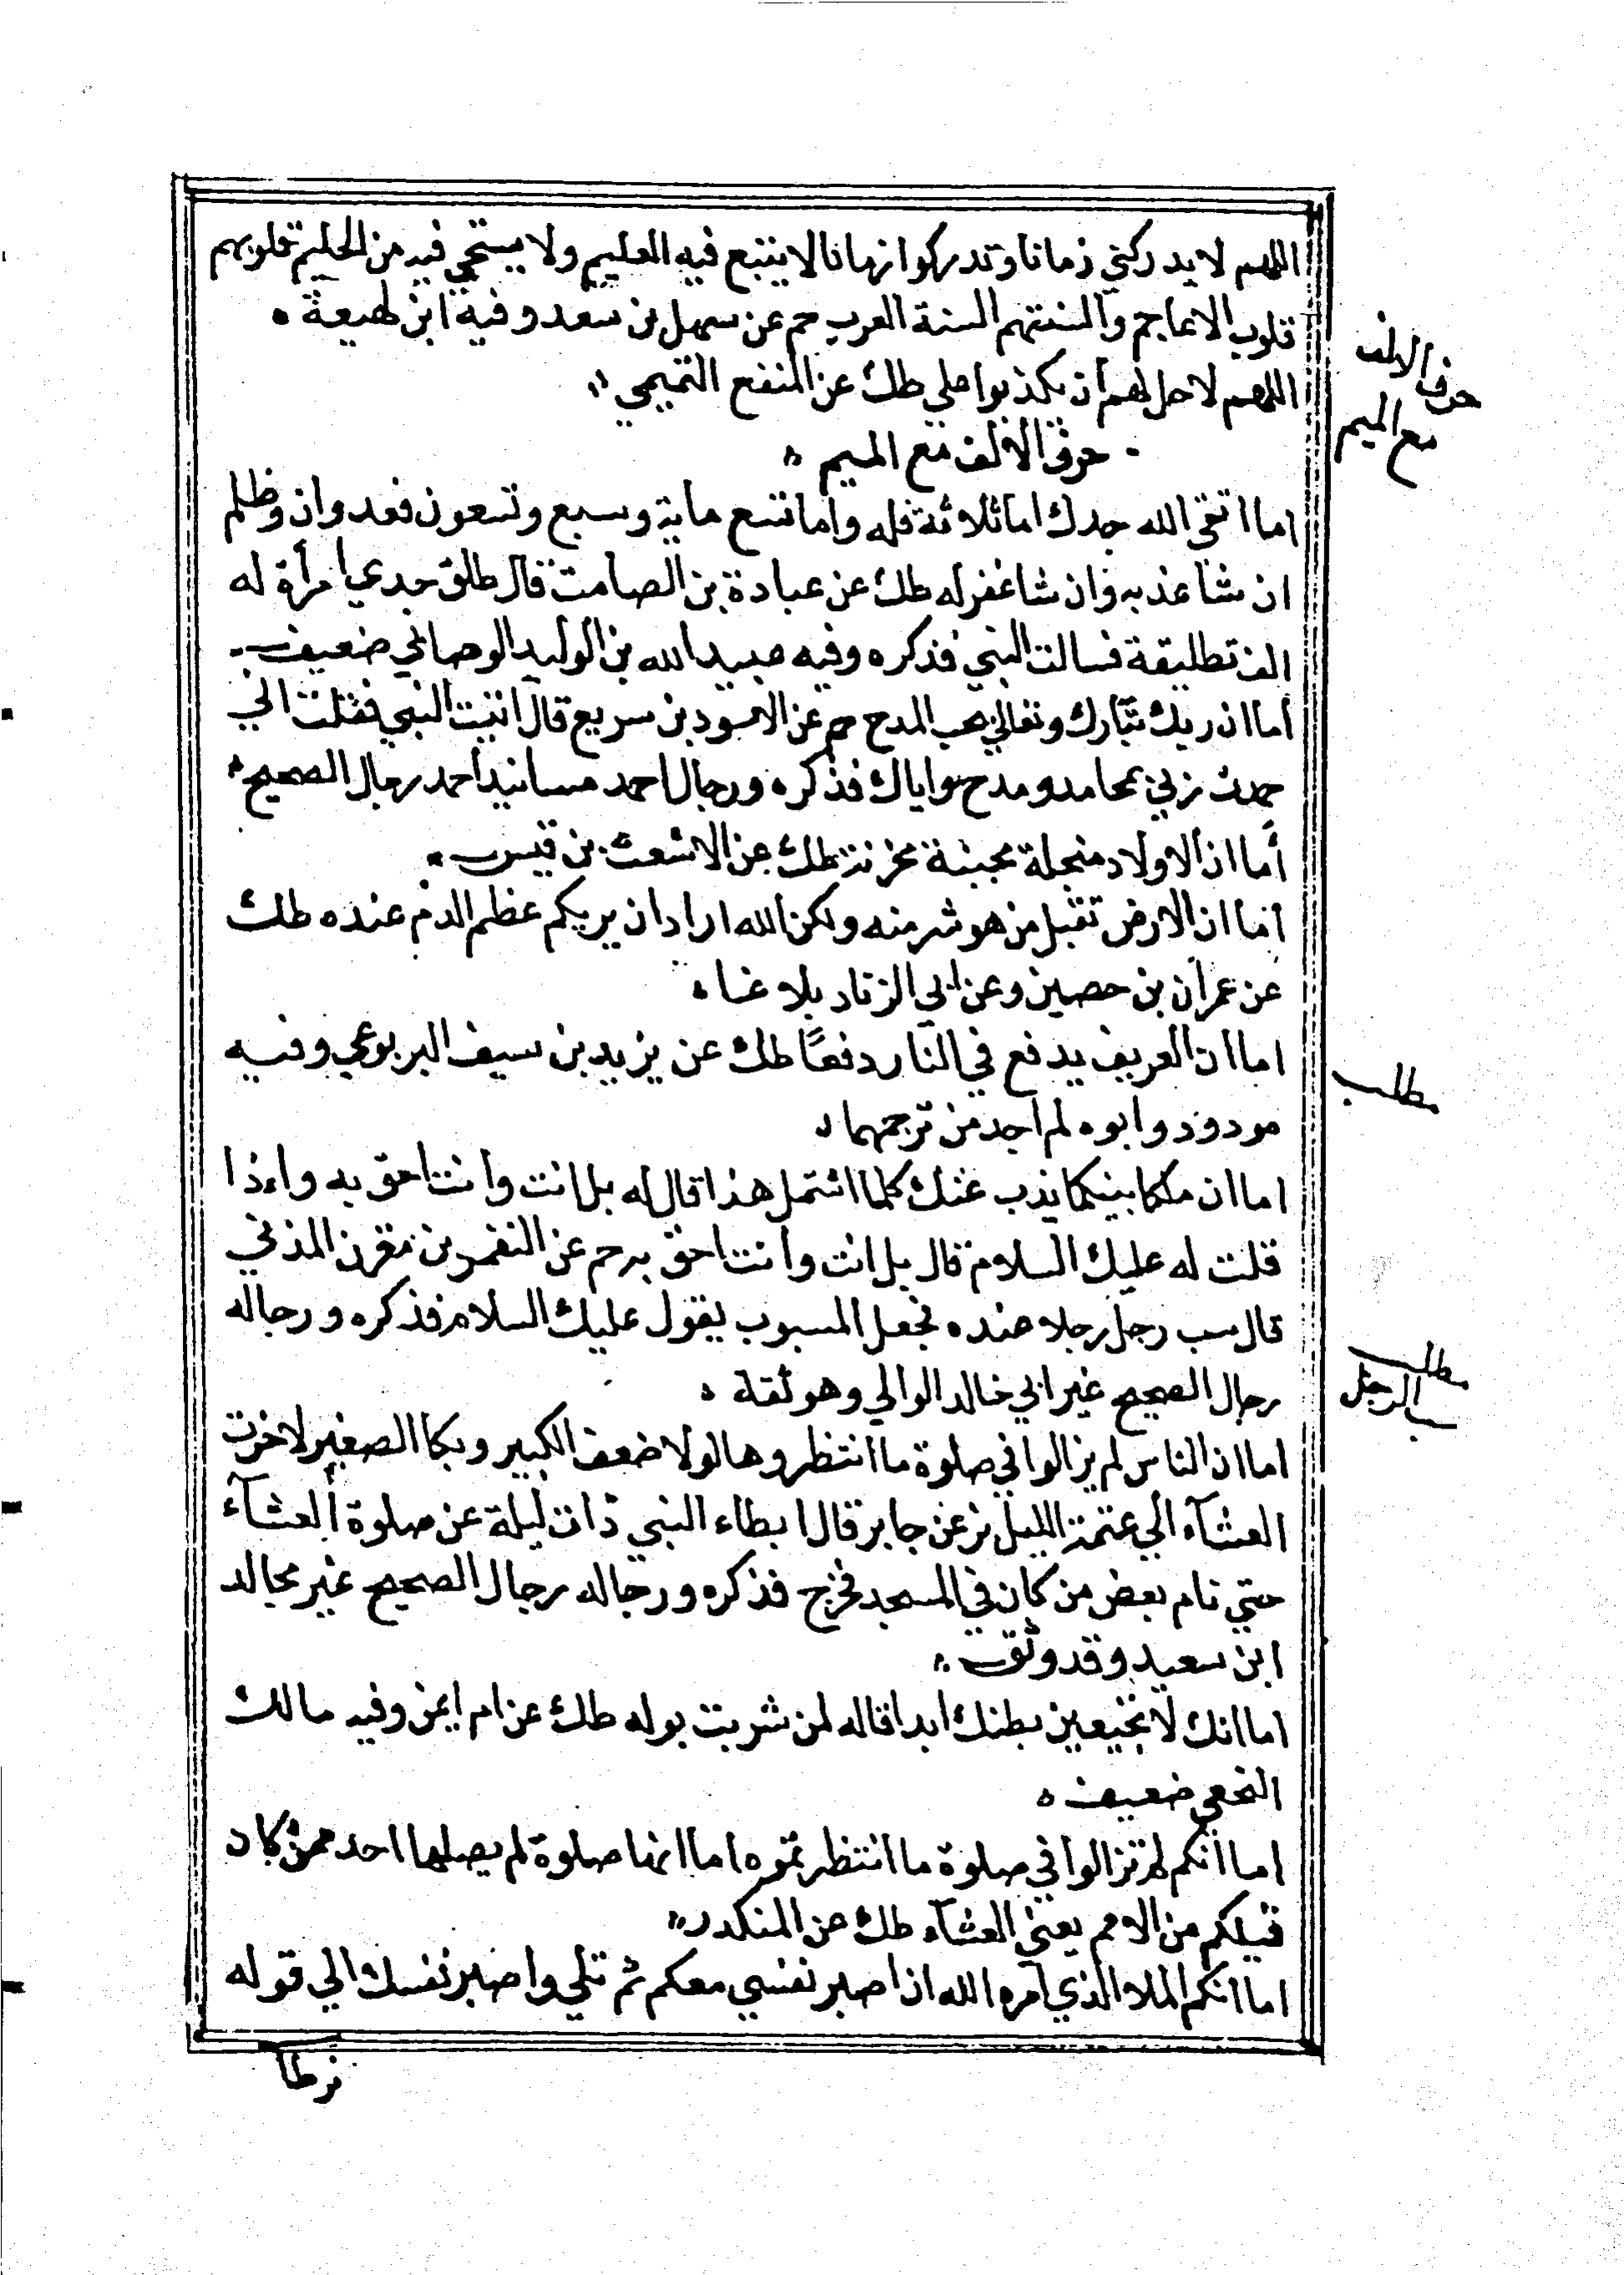 اللهم لا يدركني زمانا وتدركوا زمانا لا يتبع فيه العليم ولا يستحي فيه من الحليم قلوبهم
قلوب الاعاجم والسنتهم السنة العرب حم عن سهل بن سعد وفيه ابن لهيعة
اللهم لا احل لهم ان يكذبوا علي طك عن المنفع التميمي
حرف الالف مع الميم
اما اتقى الله جدك اما ثلاثة فله واما تسع ماية وسبع وتسعون فعدوان وظلم
ان شا عذبه وان شا غفر له طك عن عبادة بن الصامت قال طلق جدي امرأة له
الف تطليقة فسالت النبي فذكره وفيه عبيد الله بن الوليد الوصافي ضعيف
أما ان ربك تبارك وتعالي يحب المدح حم عن الاسود بن سريع قال اتيت النبي فقلت اني
حمدت ربي بمحامد ومدح واياك فذكره ورجال احمد مسانيد احمد رجال الصحيح
أما ان الاولاد مبخلة مجبنة محزنة طك عن الاشعث بن قيس
اما ان الارض تقبل من هو شر منه ولكن الله اراد ان يريكم عظم الدم عنده طك
عن عمران بن حصين وعن ابي الزناد بلاغا
اما ان العريف يدفع في النار دفعًا طك عن يزيد بن سيف اليربوعي وفيه
مودود وابوه لم اجد من ترجمهما
اما ان ملكا بينكما يذب عنك كلما اشتمل هذا قال له بل انت وانت احق به واءذا
قلت له عليك السلام قال بل انت وانت احق به حم عن النعمن بن مقرن المزني
قال سب رجل رجلا عنده فجعل المسبوب يقول عليك السلام فذكره ورجاله
رجال الصحيح غير ابي خالد الوالي وهو ثقة
اما ان الناس لم يزالوا في صلوة ما انتظروها لولا ضعف الكبير وبكا الصغير لاخرت
العشآء الي عتمة الليل بز عن جابر قال ابطاء النبي ذات ليلة عن صلوة العشآء
حتي نام بعض من كان في المسجد فخرج فذكره ورجاله رجال الصحيح غير مجالد
ابن سعيد وقد وثق
اما انك لا تجيعين بطنك ابدا قاله لمن شربت بوله طك عن ام ايمن وفيه مالك
النخعي ضعيف
اما انكم لم تزالوا في صلوة ما انتظرتموه اما انها صلوة لم يصلها احد ممن كان
قبلكم من الامم يعني العشآء طك عن المنكدر
اما انكم الملا الذي امره الله ان اصبر نفسي معكم ثم تلي واصبر نفسك الي قوله
فرطا
حرف الالف
مع الميم
مطلب
مطلب
سب الرجل